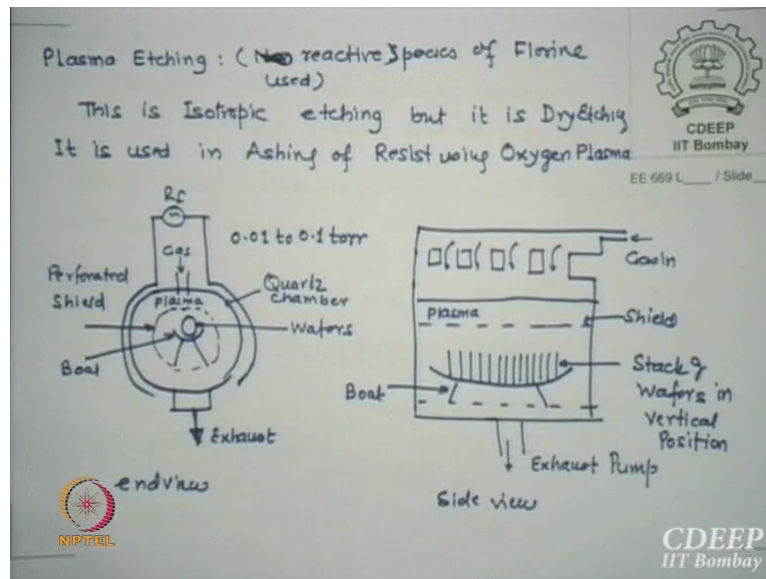 Plasma Etching : ( reactive Species of Florine
used)
This is Isotropic etching but it is DryEtchig
It is used in Ashing of Resist using Oxygen Plasma
CDEEP
IIT Bombay
EE 669 L____ / Slide__
Rf
Gas
0.01 to 0.1 torr
Perforated
Shield
plasma
Quartz
chamber
Wafers
Boat
Exhaust
endview
Gasin
plasma
Shield
Boat
Stack of
Wafers in
Vertical
Position
Exhaust Pump
Side view
NPTEL
CDEEP
IIT Bombay